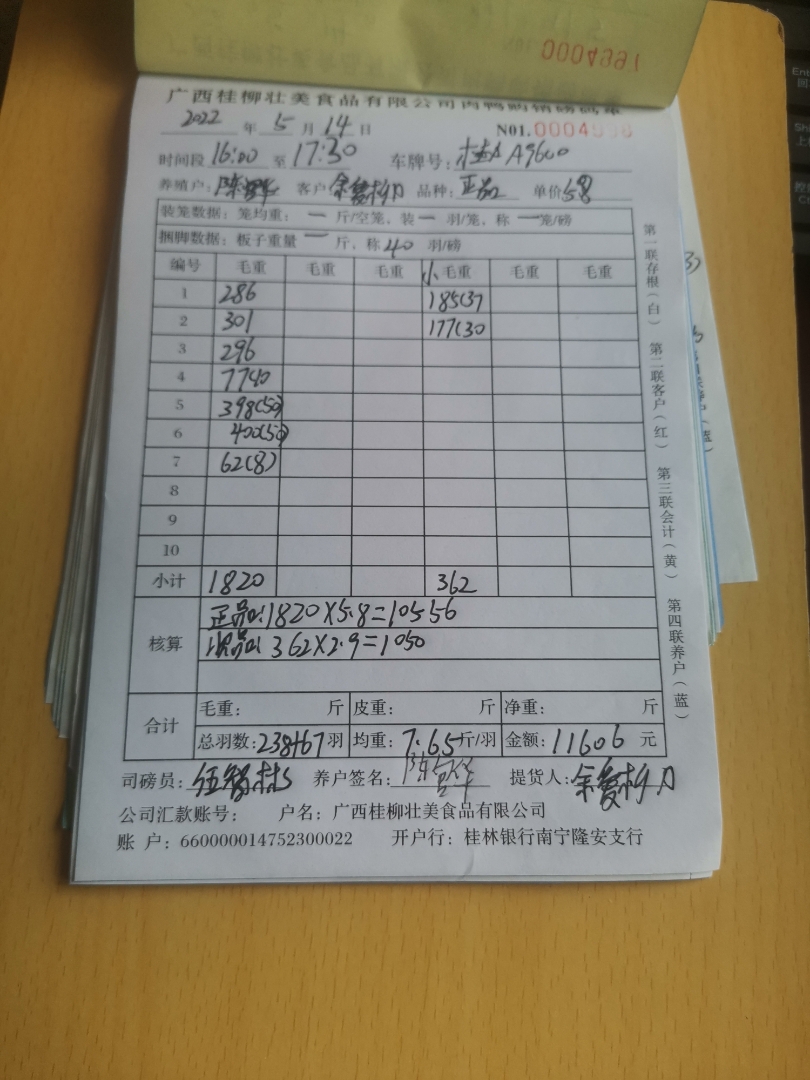 广西桂柳壮美食品有限公司肉鸭购销磅码单
2022 年 5 月 14 日 N01.
时间段 16:00 至 17:30 车牌号: A9600
养殖户: 客户 品种: 正品 单价 5.8
装笼数据: 笼均重: 一 斤/空笼、装 一 羽/笼、称 一 笼/磅
捆脚数据: 板子重量 一 斤、称 40 羽/磅
编号 毛重 毛重 毛重 小 毛重 毛重 毛重
1 286 185(37
2 301 177(30
3 296
4 7740
5 398(50)
6 400(50)
7 62(8)
8
9
10
小计 1820 362
核算 正品:1820×5.8=10556
次品: 362×2.9=1050
合计 毛重: 斤 皮重: 斤 净重: 斤
总羽数: 238+67 羽 均重: 7.65 斤/羽 金额: 11606 元
司磅员: 养户签名: 提货人:
公司汇款账号: 户名: 广西桂柳壮美食品有限公司
账 户: 660000014752300022 开户行: 桂林银行南宁隆安支行
第一联存根(白) 第二联客户(红) 第三联会计(黄) 第四联养户(蓝)